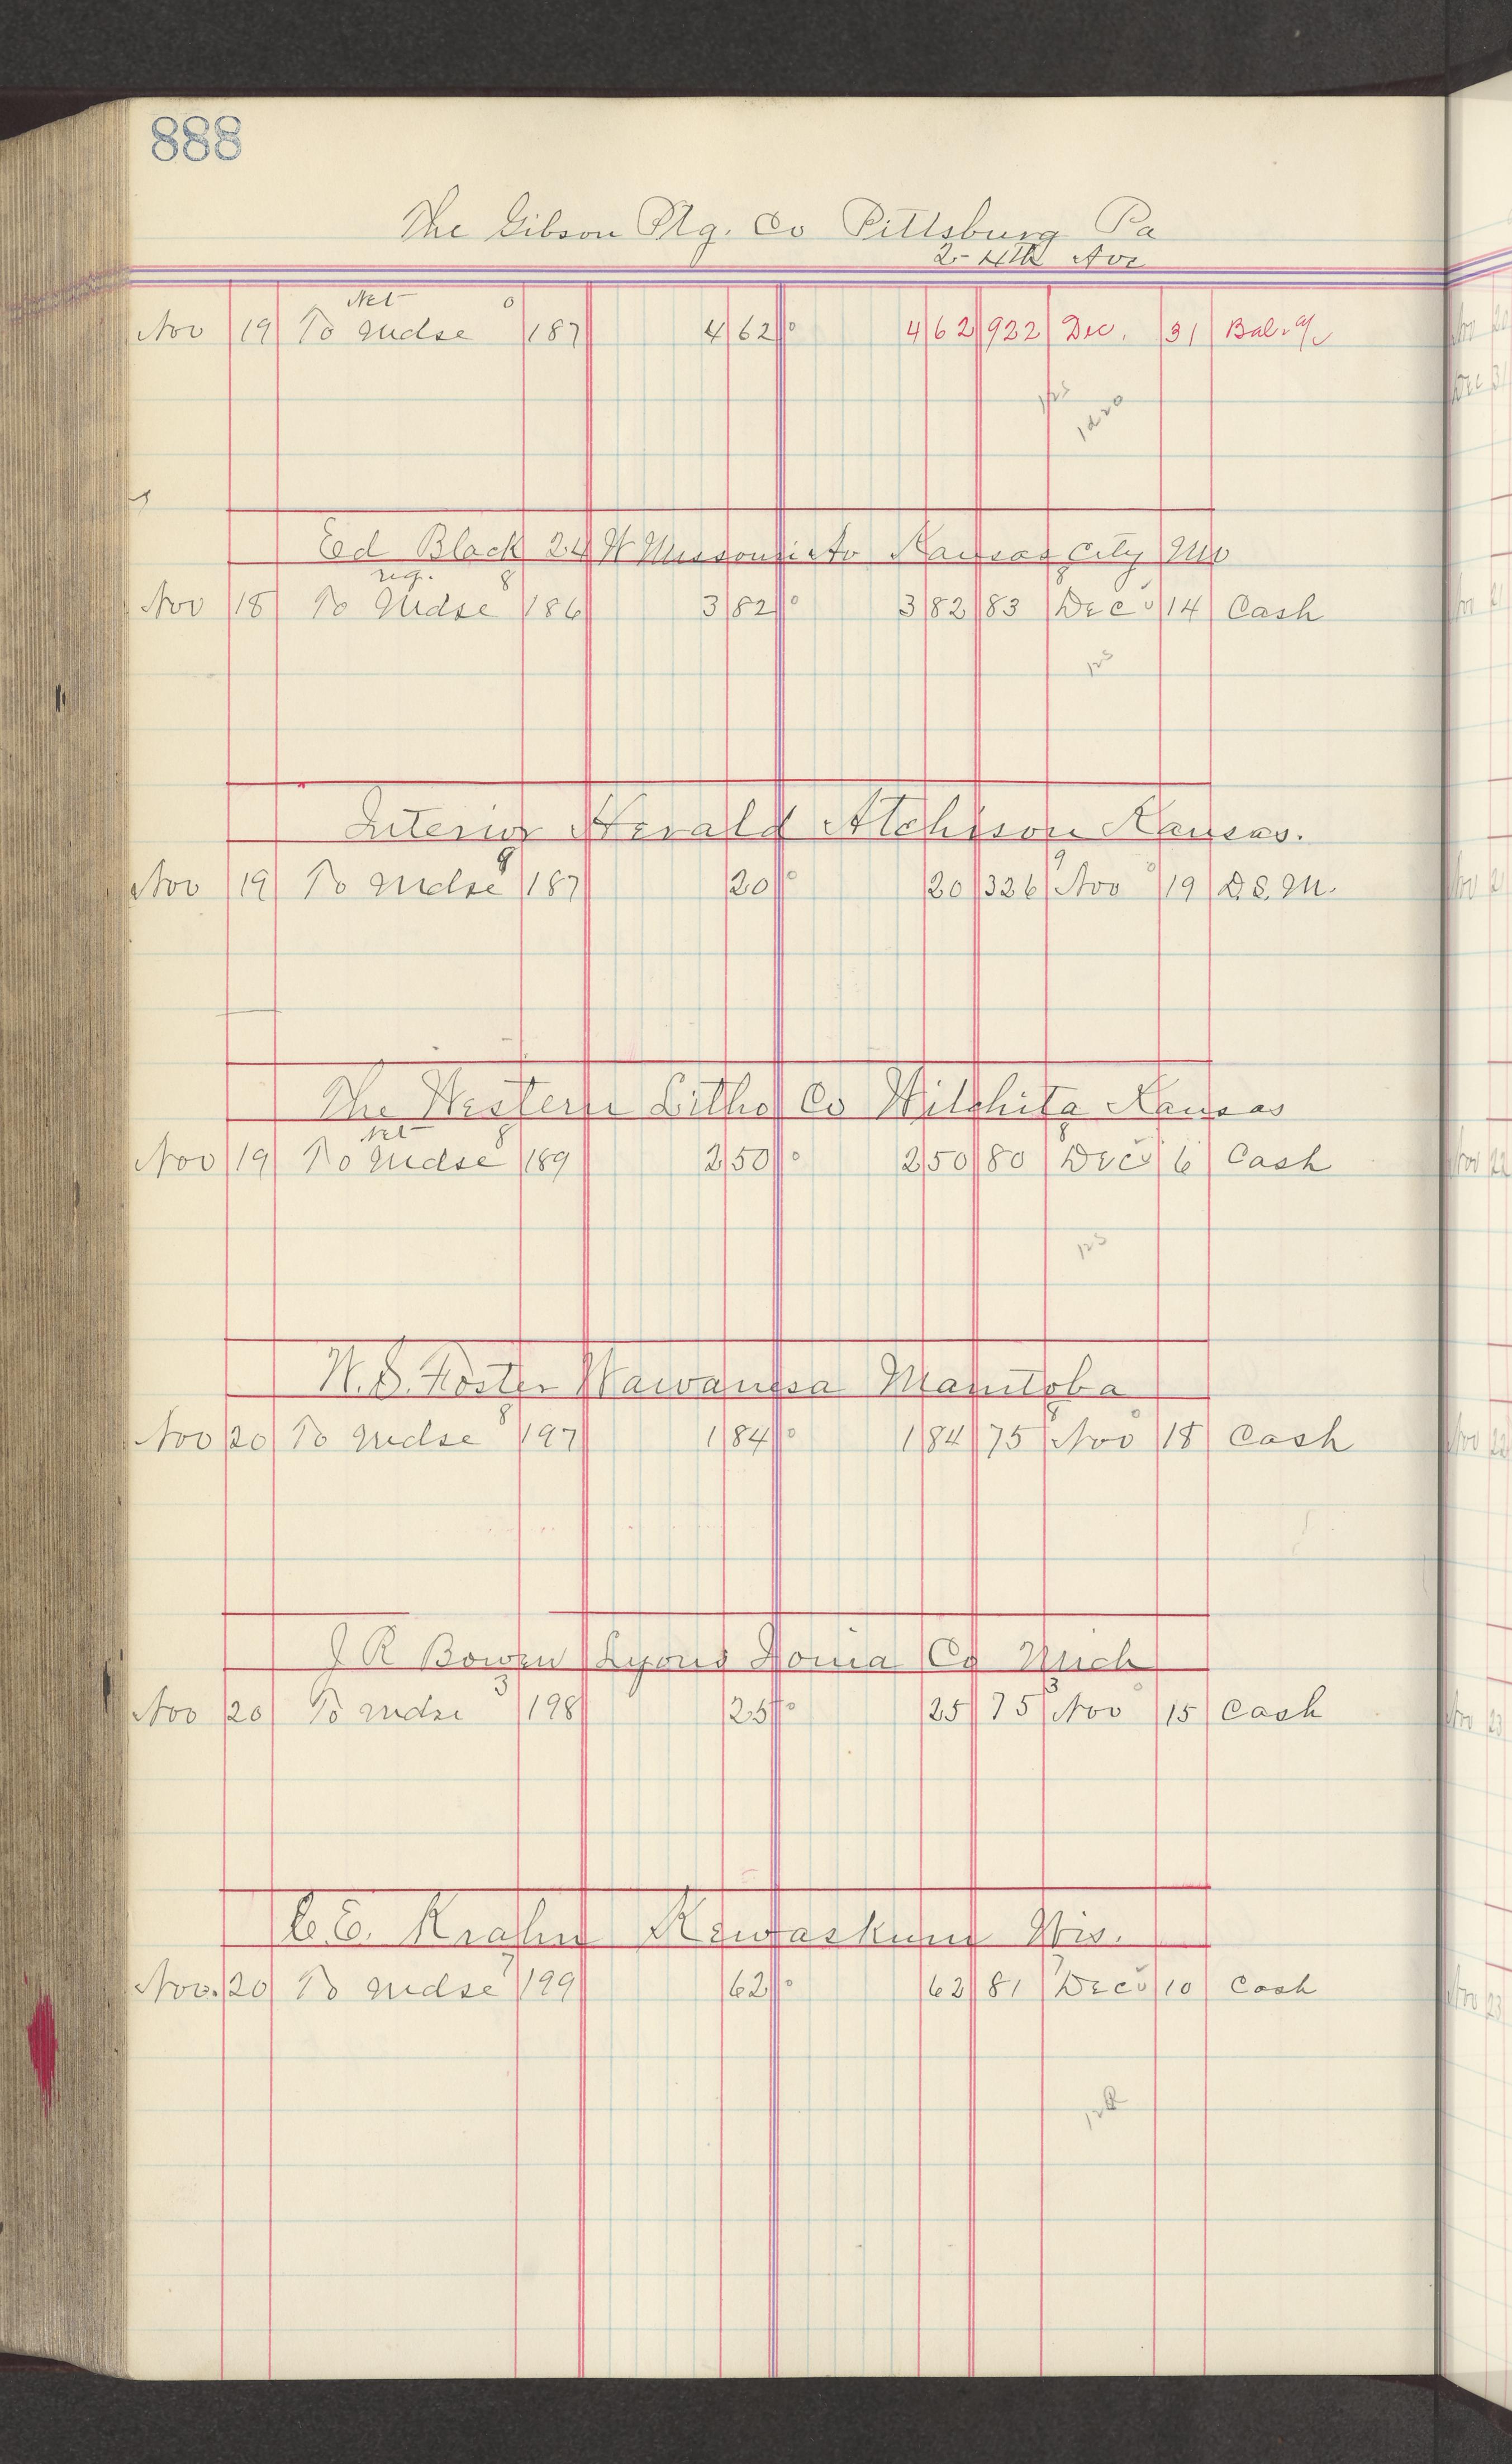 888
The Gibson Ptg. Co Pittsburg Pa
2-4th Ave
Net 0
Nov 19 To Mdse 187 4 62 0 4 62 922 Dec. 31 Bal. a/c
125
Ed Black 24 W Missouri Av Kansas City Mo
reg. 8 8
Nov 18 To Mdse 186 3 82 0 3 82 83 Dec 14 Cash
125
Interior Herald Atchison Kansas.
8 9
Nov 19 To Mdse 187 20 0 20 326 Nov 19 D.S.M.
The Western Litho Co Witchita Kansas
Net 8 8
Nov 19 To Mdse 189 2 50 0 2 50 80 Dec 6 Cash
125
W.S. Foster Wawanesa Manitoba
8 8 0
Nov 20 To Mdse 197 1 84 0 1 84 75 Nov 18 Cash
J R Bowen Lyons Ionia Co Mich
3 3 0
Nov 20 To Mdse 198 25 0 25 75 Nov 15 Cash
C.E. Krahn Kewaskum Wis.
7 7
Nov. 20 To Mdse 199 62 0 62 81 Dec 10 Cash